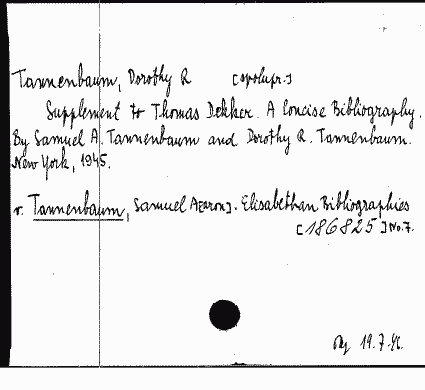 Tannenbaum, Dorothy R [spolupr.]
Supplement to Thomas Dekker. A Concise Bibliography.
By Samuel A. Tannenbaum and Dorothy R. Tannenbaum.
New York, 1945.
v. Tannenbaum, Samuel A[aron]. Elisabethan Bibliographies
[186825] No.7.
19.7.46.